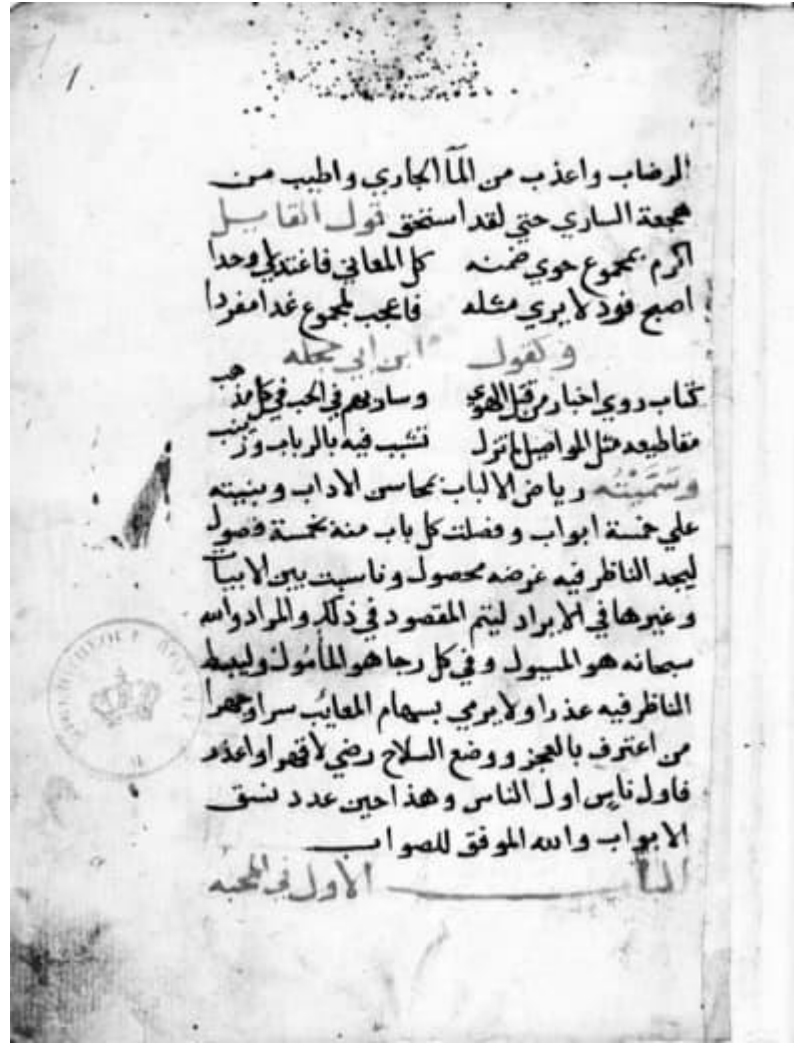 1.
الرضاب واعذب من المآ الجاري واطيب من
هجعة الساري حتي لقد استحق قول القايل
اكرم بمجموع حوي ضمنه كل المعاني فاغتدي اوحدا
اصبح فرد لا يري مثله فاعجب لمجموع غدا مفردا
وكقول ابن ابي حجله
كتاب روي اخبار من قبل الهوي وسادتهم في الحب في كل مذهب
مقاطيعه مثل المواصيل لم تزل تشبب فيه بالرباب وزينب
وسَمَيْتُه رياض الالباب بمحاسن الاداب وبنيته
علي خمسة ابواب وفصلت كل باب منه بخمسة فصول
ليجد الناظر فيه غرضه محصول وناسبت بين الابيات
وغيرها في الايراد ليتم المقصود في ذلك والمراد والله
سبحانه هو المسول وفي كل رجا هو المأمول وليبسط
الناظر فيه عذرا ولا يرمي بسهام المعائب سرا وجهرا
من اعترف بالعجز ووضع السلاح رضي
فاول ناس اول الناس وهذا حين عدد نسق
الابواب والله الموفق للصواب
الباب الاول في المحبه